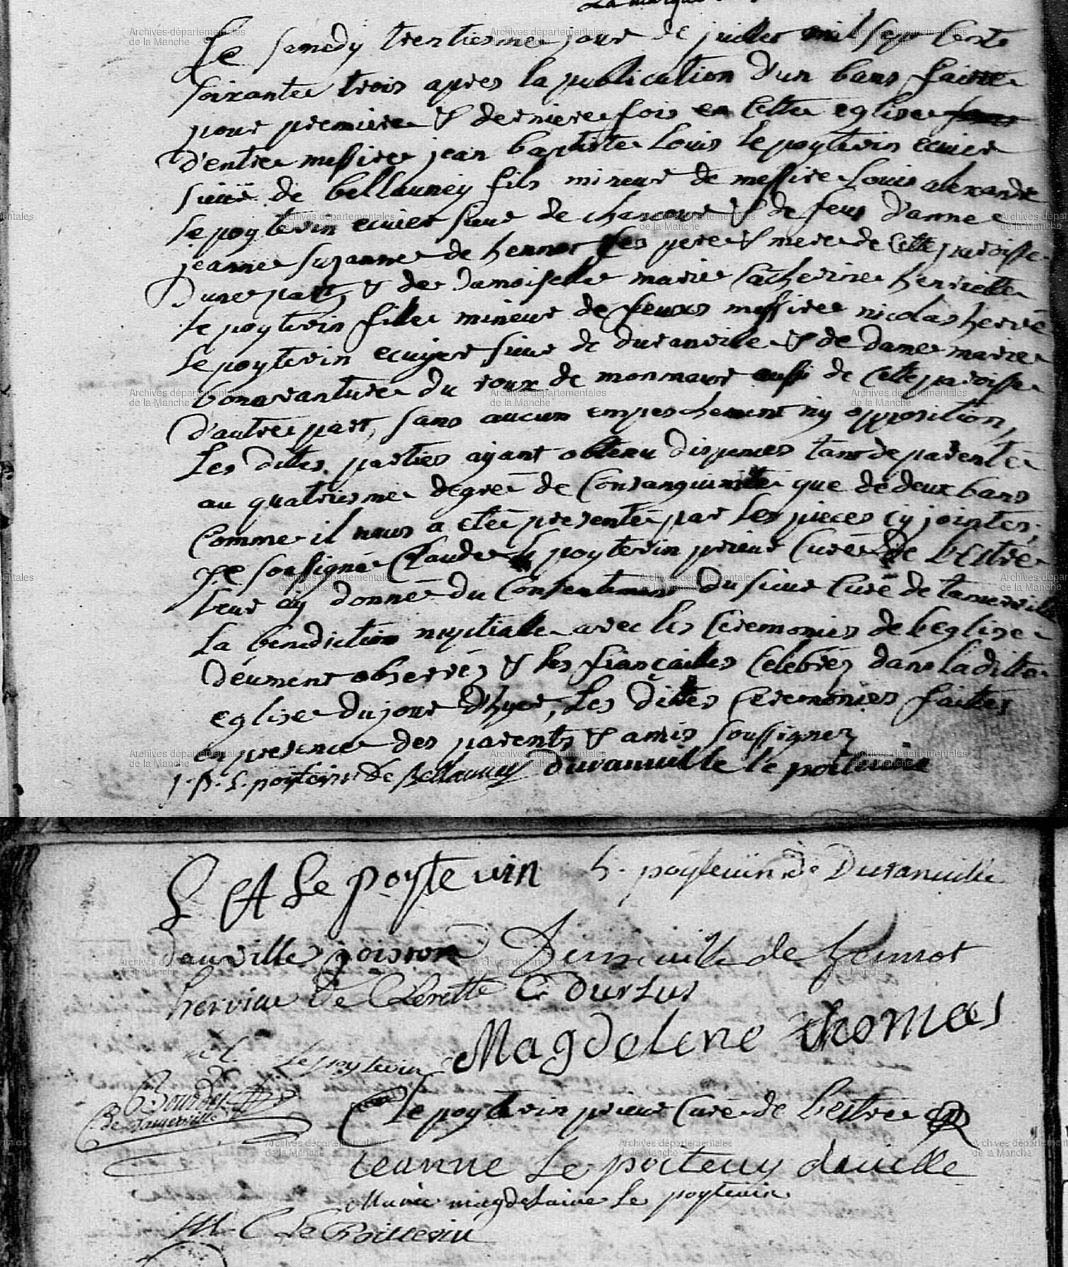 Le samedy trentiesme jour de juillet mil sept cents
soixante trois apres la publication d'un bans faitte
pour premiere & derniere fois en cette eglise
d'entre messire jean baptiste Louis le poytevin ecuier
sieur de bellauney fils mineur de messire Louis alexandre
le poytevin ecuier sieur de & de feue d'anne
jeanne suzanne de hennot ses pere & mere de cette paroisse
d'une part, & de damoiselle marie Catherine henriette
le poytevin fille mineur de feues messire nicolas hervé
le poytevin ecuyer sieur de duranville & de dame marie
bonavanture du roux de monmaur aussi de cette paroisse
d'autre part, sans aucun empeschement ny opposition,
Les dittes parties ayant obtenu dispenses tant de parenté
au quatriesme degré de Consanguinité que de deux bans
Comme il nous a eté presenté par les pieces cy jointes.
je soussigné Claude le poytevin prieur Curé de bestre
leur ay donné du Consentement du sieur Curé de tamerville
La benediction nuptiale avec les Ceremonies de l'eglise
deument observéz & les fiançailles Celebréz dans la ditte
eglise du jour d'hyer, Les dittes Ceremonies faittes
en presence des parents & amis soussignez
J. B. L. poytevin de Bellauney duranville le poitevin
L A Le poytevin h. poytevin de Duranville
dauville poisson de hennot
hervieu de Lorette C Dursus
Magdelene thomas
le poytevin
le poytevin prieur Curé de bestre
jeanne Le poitevin
Marie magdelaine le poytevin
M. C. le Poittevin
Archives départementales
de la Manche